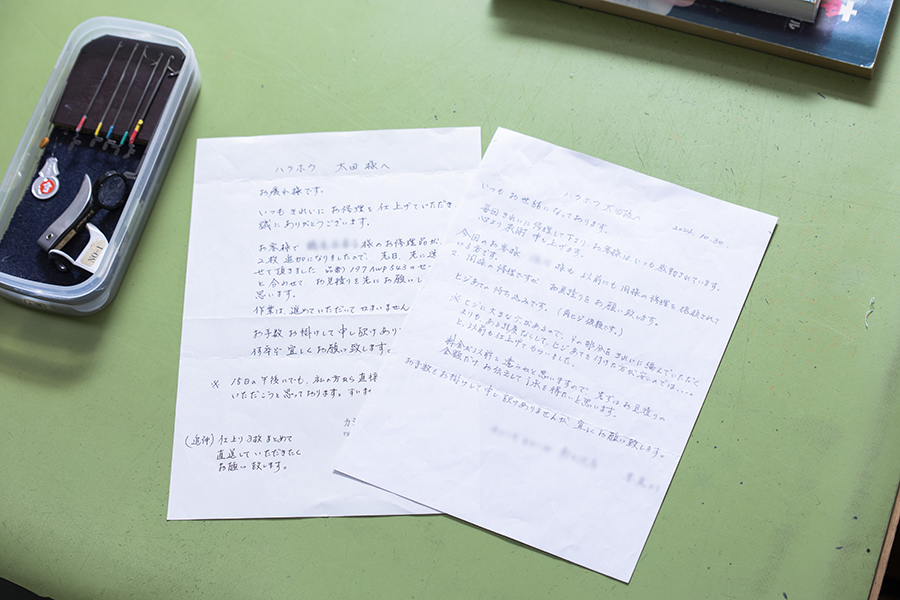 ハクホウ 太田様へ
お疲れ様です。
いつもきれいにお修理を仕上げていただき
誠にありがとうございます。
お客様で 様のお修理品が、
2枚追加になりましたので、先日、先に送
せて頂きました 品番) 197 AWP 543のセー
と合わせて お見積りを先にお願いし
思います。
作業は進めていただいてかまいません
お手数お掛けして申し訳あり
何卒宜しくお願い致します。
※ 15日の午後にでも、私の方から直接
いただこうと思っております。すいま
(追伸) 仕上り3枚まとめて
直送していただきたく
お願い致します。
ハクホウ太田様へ
2024. 10.30
いつもお世話になっております。
毎回きれいに修理して下さりお客様はいつも感動されています。
心より感謝申し上げます。
今回のお客様 様も以前にも同様の修理を依頼されて
いる方です。
同様の修理ですが お見積りをお願い致します。
ヒジあての持ち込みです。(両ヒジ依頼です。)
※ ヒジに大きな穴があるので、その部分をきれいに編んでいただく
よりも、ある程度なおして、ヒジあてを付けた方が安いのでは・・・。
と、以前も仕上げてもらいました。
料金が以前と違うかと思いますので、まずはお見積りの
金額だけお伝えして了承を得たいと思います。
お手数をお掛けして申し訳ありませんが、宜しくお願い致します。